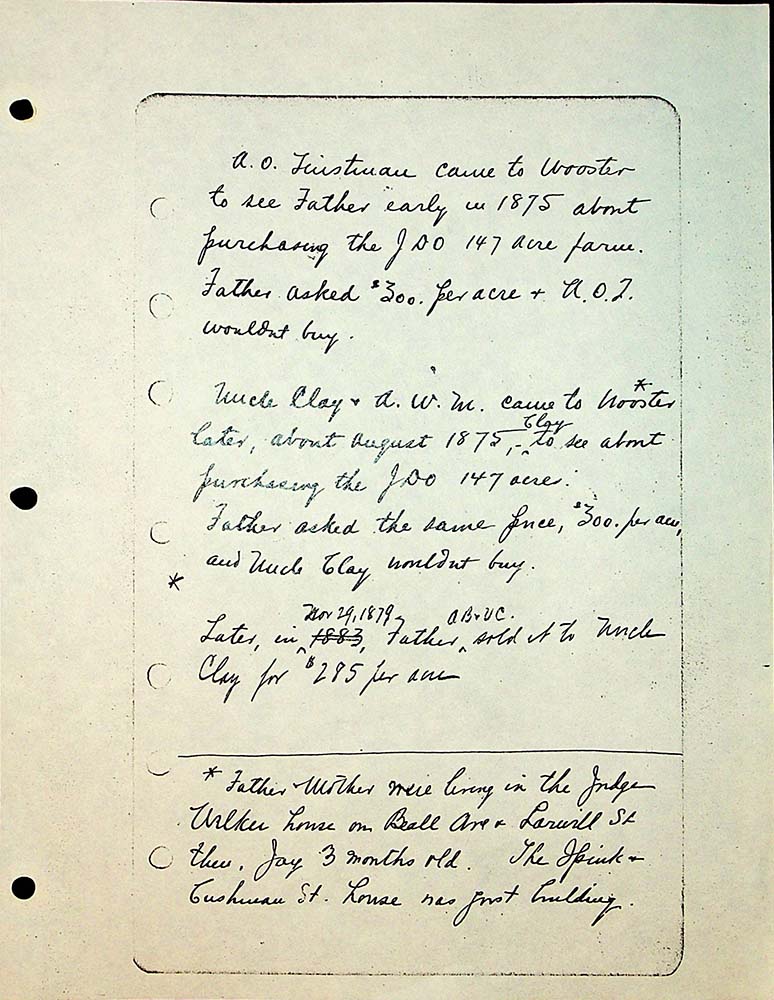 A. O. Tinstman came to Wooster
to see Father early in 1875 about
purchasing the JDO 147 acre farm.
Father asked $300. per acre + A.O.T.
wouldnt buy.
Uncle Clay + A. W. M. came to Wooster *
later, about August 1875, - Clay to see about
purchasing the JDO 147 acres.
Father asked the same price, $300. per acre,
and Uncle Clay wouldnt buy.
*
Later, in Nov 29, 1879 1883, Father, AB+UC. sold it to Uncle
Clay for $285 per acre
* Father + Mother were living in the Judge
house on Beall Ave + Larwill St
then. Jay 3 months old. The Spink +
Cushman St. house was just building.